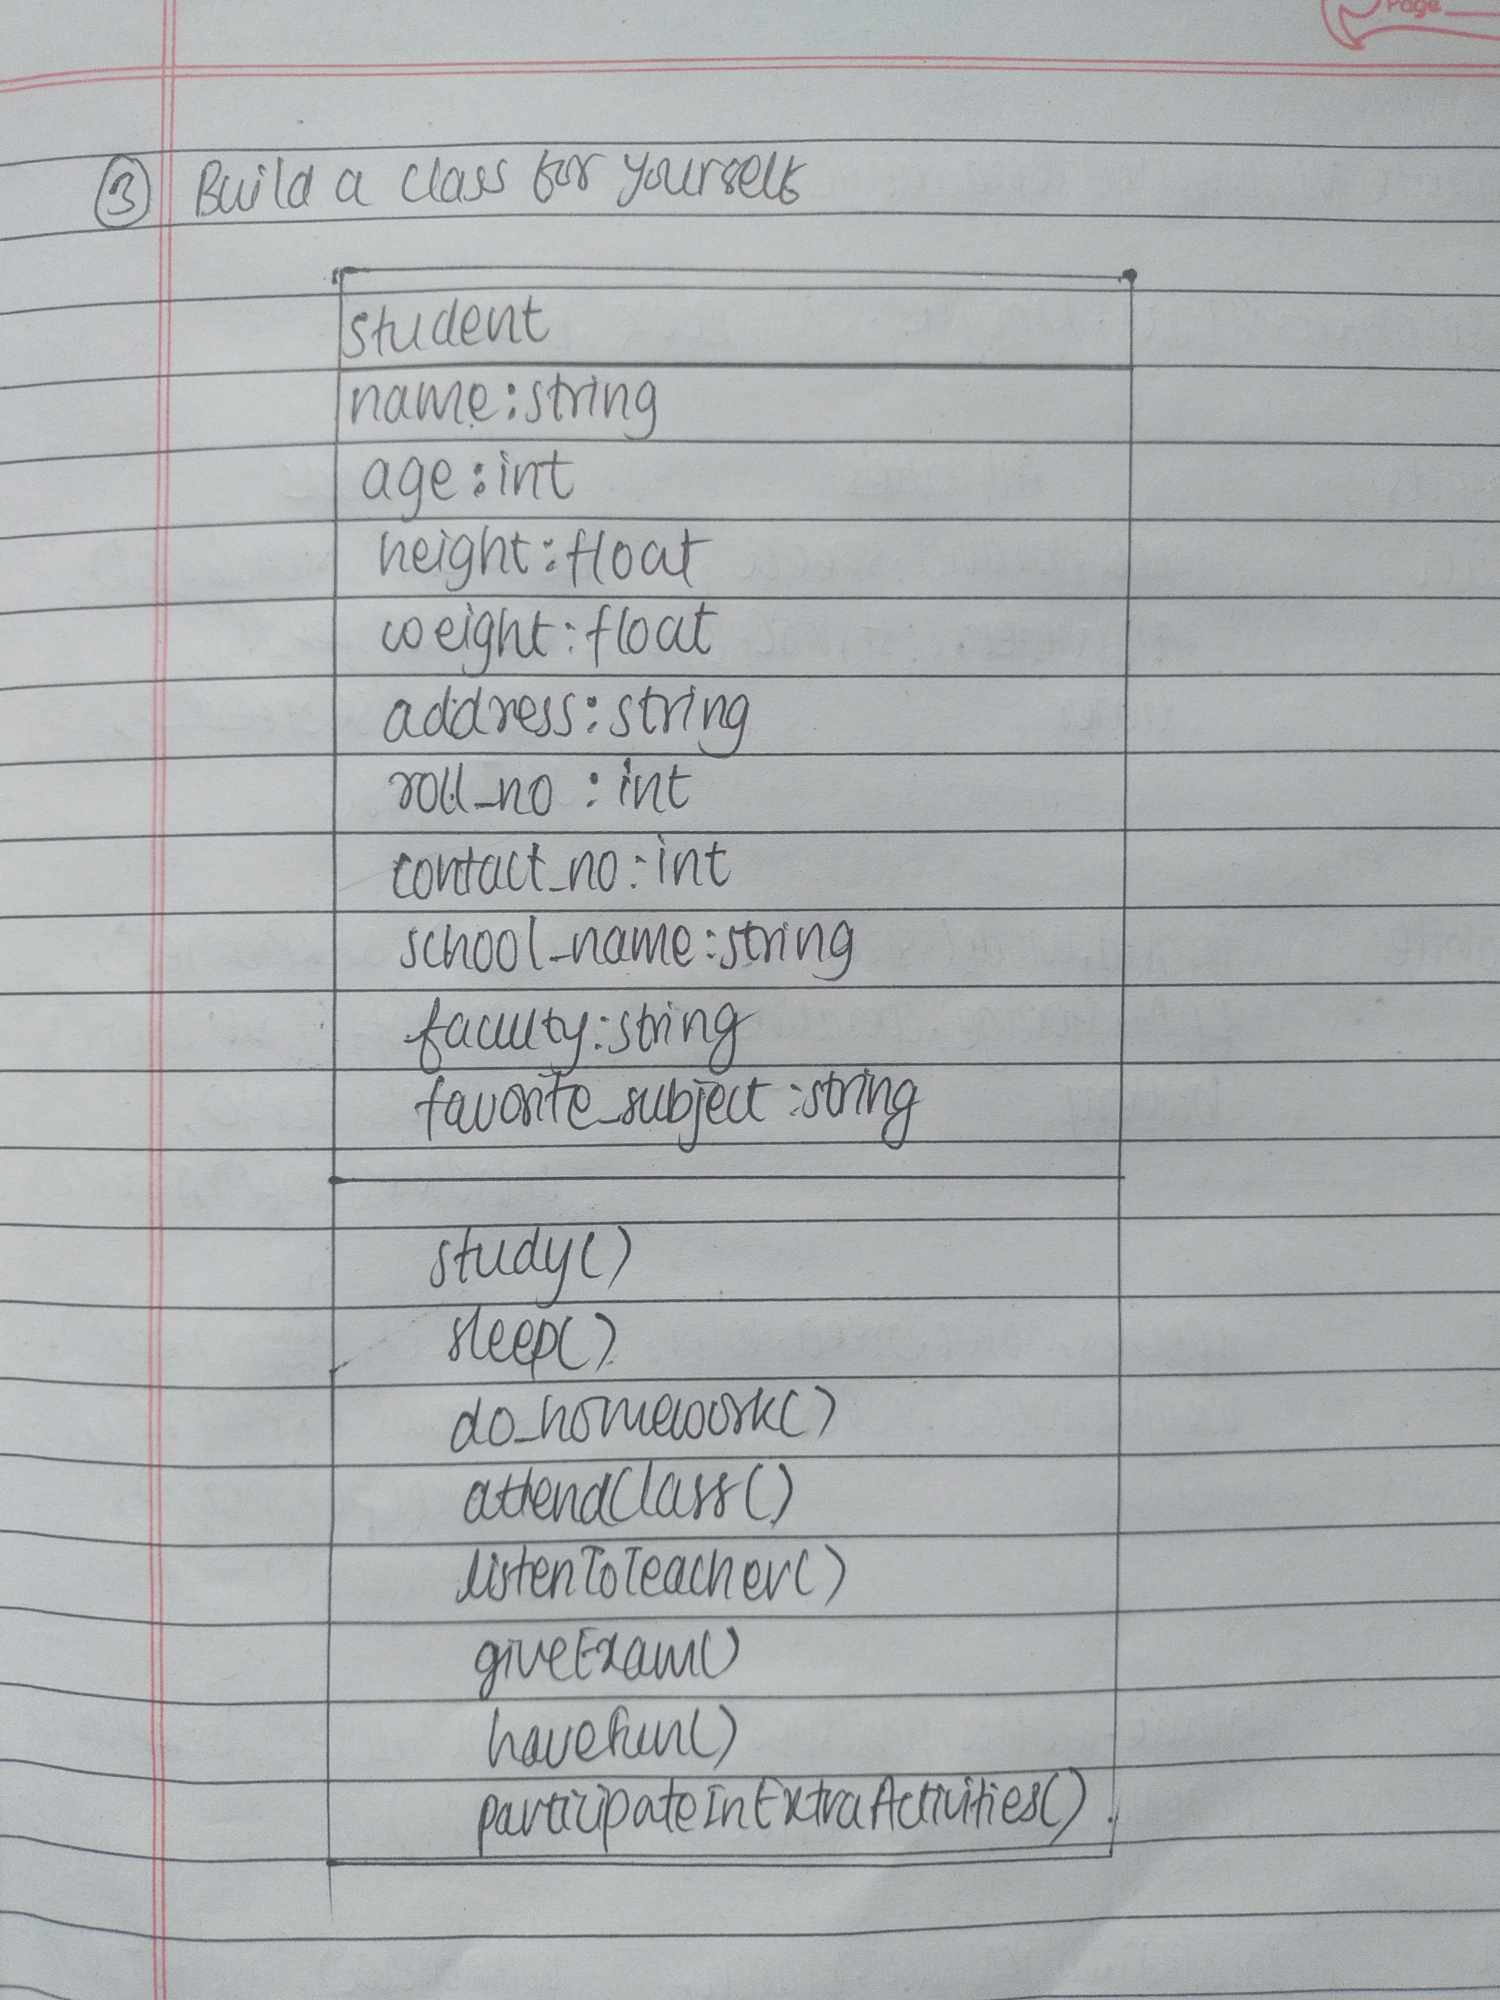 Page
3 Build a class for yourself
student
name:string
age:int
height:float
weight:float
address:string
roll_no :int
contact_no:int
school_name:string
faculty:string
favorite_subject:string
study()
sleep()
do_homework()
attendClass()
listenToTeacher()
giveExam()
haveFun()
participateInExtraActivities().